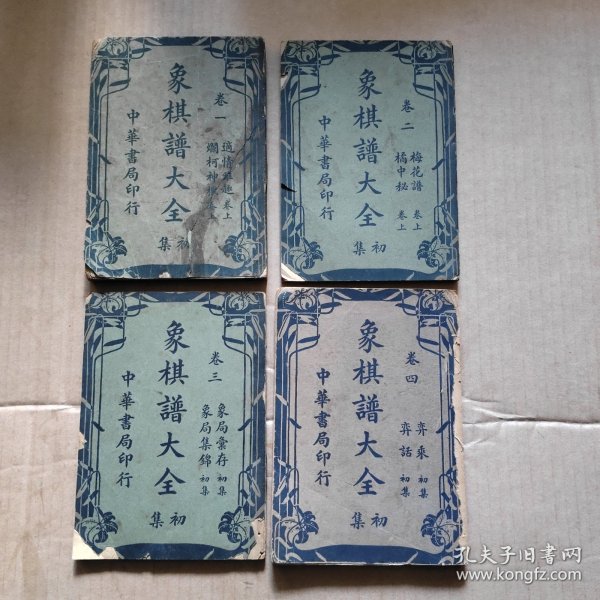 象棋譜大全
初集
卷一
適情雅趣 卷上
爛柯神機 卷上
中華書局印行
象棋譜大全
初集
卷二
梅花譜 卷上
橘中秘 卷上
中華書局印行
象棋譜大全
初集
卷三
象局彙存 初集
象局集錦 初集
中華書局印行
象棋譜大全
初集
卷四
弈乘 初集
弈話 初集
中華書局印行
孔夫子旧书网
www.kongfz.com